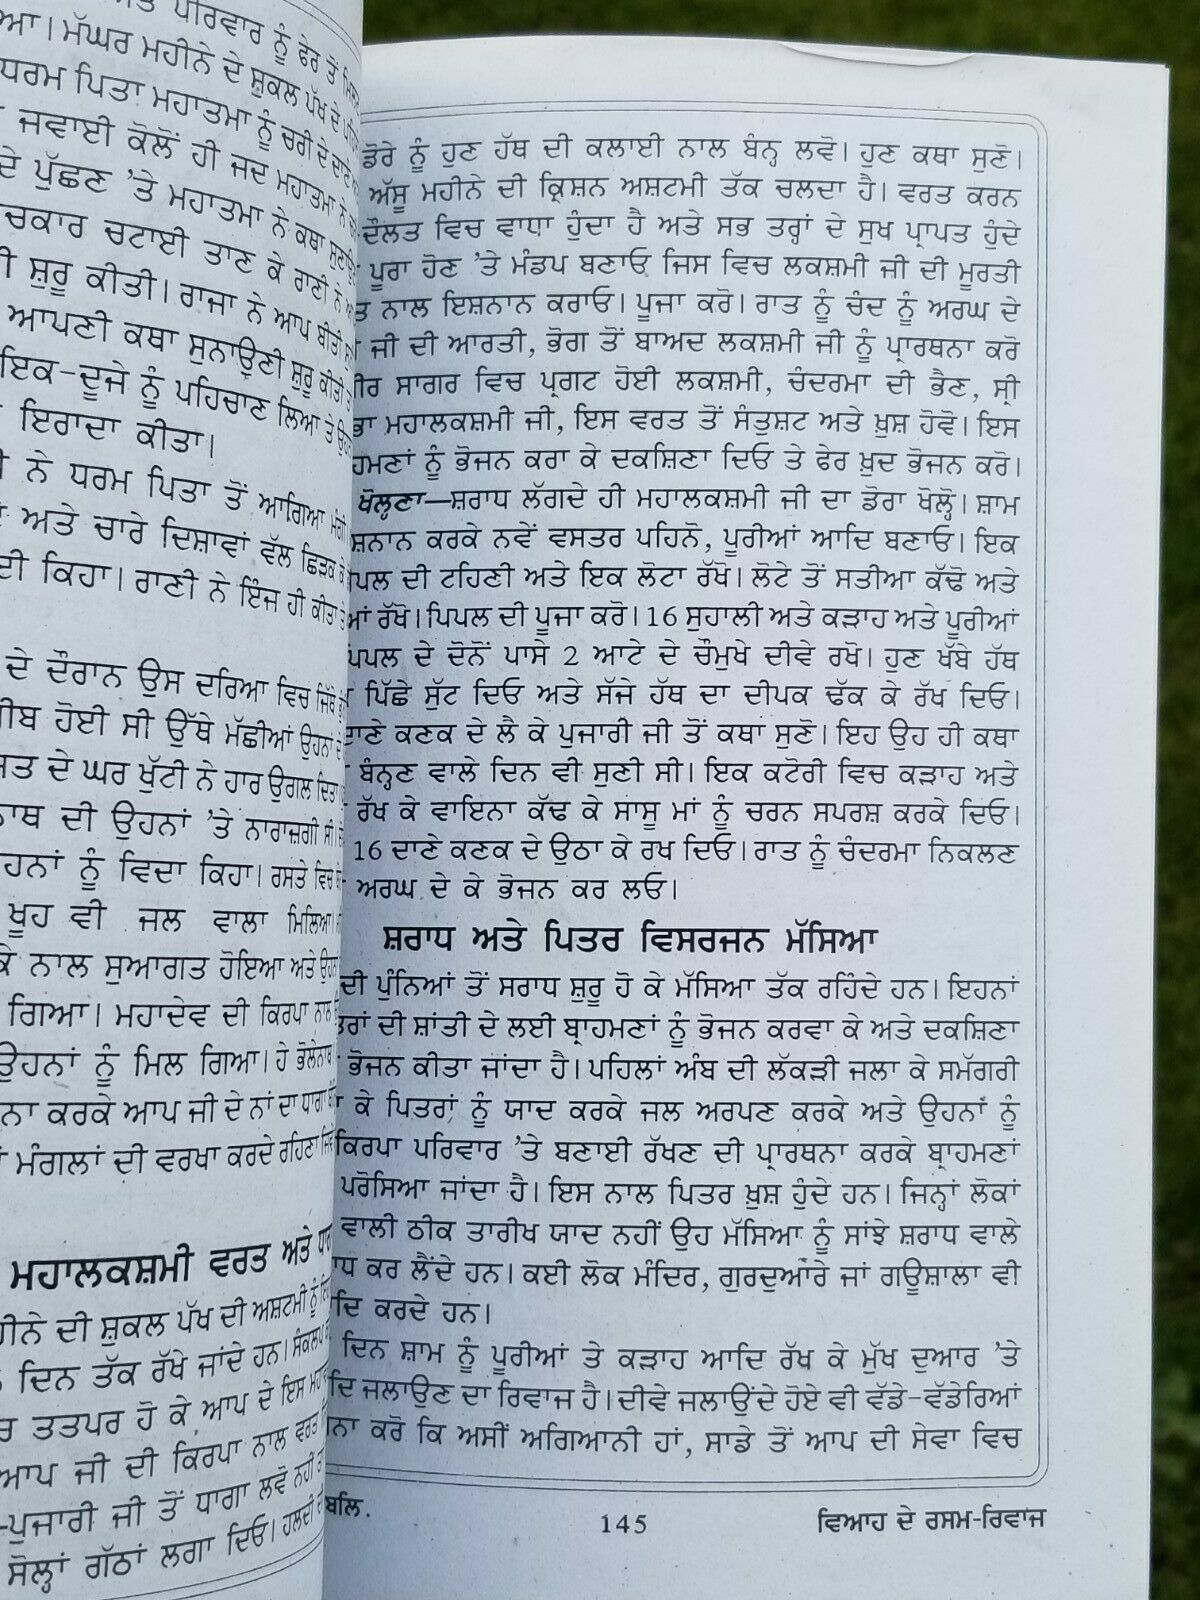 ਪਰਿਵਾਰ ਨੂੰ ਫੇਰ ਤੋਂ
ਆ। ਮੱਘਰ ਮਹੀਨੇ ਦੇ ਸ਼ੁਕਲ ਪੱਖ ਦੇ
ਧਰਮ ਪਿਤਾ ਮਹਾਤਮਾ ਨੂੰ ਚਰੀ ਦੇ ਦਾਣੇ
ਜਵਾਈ ਕੋਲੋਂ ਹੀ ਜਦ ਮਹਾਤਮਾ ਨੇ
ਦੇ ਪੁੱਛਣ ’ਤੇ ਮਹਾਤਮਾ ਨੇ ਕਥਾ
ਚਕਾਰ ਚਟਾਈ ਤਾਣ ਕੇ ਰਾਣੀ ਨੇ
ਸ਼ੁਰੂ ਕੀਤੀ। ਰਾਜਾ ਨੇ ਆਪ ਬੀਤੀ
ਆਪਣੀ ਕਥਾ ਸੁਨਾਉਣੀ ਸ਼ੁਰੂ ਕੀਤੀ
ਇਕ-ਦੂਜੇ ਨੂੰ ਪਹਿਚਾਣ ਲਿਆ ਤੇ
ਇਰਾਦਾ ਕੀਤਾ।
ਨੇ ਧਰਮ ਪਿਤਾ ਤੋਂ ਆਗਿਆ ਮੰਗੀ
ਅਤੇ ਚਾਰੇ ਦਿਸ਼ਾਵਾਂ ਵੱਲ ਛਿੜਕ
ਕਿਹਾ। ਰਾਣੀ ਨੇ ਇੰਜ ਹੀ ਕੀਤਾ
ਦੇ ਦੌਰਾਨ ਉਸ ਦਰਿਆ ਵਿਚ ਜਿੱਥੇ
ਹੋਈ ਸੀ ਉੱਥੇ ਮੱਛੀਆਂ ਉਹਨਾਂ
ਦੇ ਘਰ ਖੁੱਟੀ ਨੇ ਹਾਰ ਉਗਲ ਦਿਤਾ
ਦੀ ਉਹਨਾਂ ’ਤੇ ਨਾਰਾਜ਼ਗੀ ਸੀ
ਨੂੰ ਵਿਦਾ ਕਿਹਾ। ਰਸਤੇ ਵਿਚ
ਖੂਹ ਵੀ ਜਲ ਵਾਲਾ ਮਿਲਿਆ।
ਕੇ ਨਾਲ ਸੁਆਗਤ ਹੋਇਆ ਅਤੇ
ਗਿਆ। ਮਹਾਦੇਵ ਦੀ ਕਿਰਪਾ ਨਾਲ
ਉਹਨਾਂ ਨੂੰ ਮਿਲ ਗਿਆ। ਹੇ ਭੋਲੇਨਾਥ
ਕਰਕੇ ਆਪ ਜੀ ਦੇ ਨਾਂ ਦਾ ਧਾਗਾ
ਮੰਗਲਾਂ ਦੀ ਵਰਖਾ ਕਰਦੇ ਰਹਿਣਾ
ਮਹਾਲਕਸ਼ਮੀ ਵਰਤ ਅਤੇ
ਦੀ ਸ਼ੁਕਲ ਪੱਖ ਦੀ ਅਸ਼ਟਮੀ ਨੂੰ
ਦਿਨ ਤੱਕ ਰੱਖੇ ਜਾਂਦੇ ਹਨ।
ਤਤਪਰ ਹੋ ਕੇ ਆਪ ਦੇ ਇਸ
ਆਪ ਜੀ ਦੀ ਕਿਰਪਾ ਨਾਲ ਵਰਤ
ਪੁਜਾਰੀ ਜੀ ਤੋਂ ਧਾਗਾ ਲਵੋ ਨਹੀਂ
ਸੋਲ੍ਹਾਂ ਗੱਠਾਂ ਲਗਾ ਦਿਓ। ਹਲਦੀ
ਡੋਰੇ ਨੂੰ ਹੁਣ ਹੱਥ ਦੀ ਕਲਾਈ ਨਾਲ ਬੰਨ੍ਹ ਲਵੋ। ਹੁਣ ਕਥਾ ਸੁਣੋ।
ਅੱਸੂ ਮਹੀਨੇ ਦੀ ਕ੍ਰਿਸ਼ਨ ਅਸ਼ਟਮੀ ਤੱਕ ਚਲਦਾ ਹੈ। ਵਰਤ ਕਰਨ
ਦੌਲਤ ਵਿਚ ਵਾਧਾ ਹੁੰਦਾ ਹੈ ਅਤੇ ਸਭ ਤਰ੍ਹਾਂ ਦੇ ਸੁਖ ਪ੍ਰਾਪਤ ਹੁੰਦੇ
ਪੂਰਾ ਹੋਣ ’ਤੇ ਮੰਡਪ ਬਣਾਓ ਜਿਸ ਵਿਚ ਲਕਸ਼ਮੀ ਜੀ ਦੀ ਮੂਰਤੀ
ਨਾਲ ਇਸ਼ਨਾਨ ਕਰਾਓ। ਪੂਜਾ ਕਰੋ। ਰਾਤ ਨੂੰ ਚੰਦ ਨੂੰ ਅਰਘ ਦੇ
ਜੀ ਦੀ ਆਰਤੀ, ਭੋਗ ਤੋਂ ਬਾਅਦ ਲਕਸ਼ਮੀ ਜੀ ਨੂੰ ਪ੍ਰਾਰਥਨਾ ਕਰੋ
ਸਾਗਰ ਵਿਚ ਪ੍ਰਗਟ ਹੋਈ ਲਕਸ਼ਮੀ, ਚੰਦਰਮਾ ਦੀ ਭੈਣ, ਸ੍ਰੀ
ਮਹਾਲਕਸ਼ਮੀ ਜੀ, ਇਸ ਵਰਤ ਤੋਂ ਸੰਤੁਸ਼ਟ ਅਤੇ ਖ਼ੁਸ਼ ਹੋਵੋ। ਇਸ
ਹਮਣਾਂ ਨੂੰ ਭੋਜਨ ਕਰਾ ਕੇ ਦਕਸ਼ਿਣਾ ਦਿਓ ਤੇ ਫੇਰ ਖ਼ੁਦ ਭੋਜਨ ਕਰੋ।
ਖੋਲ੍ਹਣਾ—ਸ਼ਰਾਧ ਲੱਗਦੇ ਹੀ ਮਹਾਲਕਸ਼ਮੀ ਜੀ ਦਾ ਡੋਰਾ ਖੋਲ੍ਹੋ। ਸ਼ਾਮ
ਸ਼ਨਾਨ ਕਰਕੇ ਨਵੇਂ ਵਸਤਰ ਪਹਿਨੋ, ਪੂਰੀਆਂ ਆਦਿ ਬਣਾਓ। ਇਕ
ਪਲ ਦੀ ਟਹਿਣੀ ਅਤੇ ਇਕ ਲੋਟਾ ਰੱਖੋ। ਲੋਟੇ ਤੋਂ ਸਤੀਆ ਕੱਢੋ ਅਤੇ
ਆਂ ਰੱਖੋ। ਪਿਪਲ ਦੀ ਪੂਜਾ ਕਰੋ। 16 ਸੁਹਾਲੀ ਅਤੇ ਕੜਾਹ ਅਤੇ ਪੂਰੀਆਂ
ਪਿਪਲ ਦੇ ਦੋਨੋਂ ਪਾਸੇ 2 ਆਟੇ ਦੇ ਚੌਮੁਖੇ ਦੀਵੇ ਰਖੋ। ਹੁਣ ਖੱਬੇ ਹੱਥ
ਪਿੱਛੇ ਸੁੱਟ ਦਿਓ ਅਤੇ ਸੱਜੇ ਹੱਥ ਦਾ ਦੀਪਕ ਢੱਕ ਕੇ ਰੱਖ ਦਿਓ।
ਦਾਣੇ ਕਣਕ ਦੇ ਲੈ ਕੇ ਪੁਜਾਰੀ ਜੀ ਤੋਂ ਕਥਾ ਸੁਣੋ। ਇਹ ਉਹ ਹੀ ਕਥਾ
ਬੰਨ੍ਹਣ ਵਾਲੇ ਦਿਨ ਵੀ ਸੁਣੀ ਸੀ। ਇਕ ਕਟੋਰੀ ਵਿਚ ਕੜਾਹ ਅਤੇ
ਰੱਖ ਕੇ ਵਾਇਨਾ ਕੱਢ ਕੇ ਸਾਸੂ ਮਾਂ ਨੂੰ ਚਰਨ ਸਪਰਸ਼ ਕਰਕੇ ਦਿਓ।
16 ਦਾਣੇ ਕਣਕ ਦੇ ਉਠਾ ਕੇ ਰਖ ਦਿਓ। ਰਾਤ ਨੂੰ ਚੰਦਰਮਾ ਨਿਕਲਣ
ਅਰਘ ਦੇ ਕੇ ਭੋਜਨ ਕਰ ਲਓ।
ਸ਼ਰਾਧ ਅਤੇ ਪਿਤਰ ਵਿਸਰਜਨ ਮੱਸਿਆ
ਦੀ ਪੁੰਨਿਆਂ ਤੋਂ ਸਰਾਧ ਸ਼ੁਰੂ ਹੋ ਕੇ ਮੱਸਿਆ ਤੱਕ ਰਹਿੰਦੇ ਹਨ। ਇਹਨਾਂ
ਤਰਾਂ ਦੀ ਸ਼ਾਂਤੀ ਦੇ ਲਈ ਬ੍ਰਾਹਮਣਾਂ ਨੂੰ ਭੋਜਨ ਕਰਵਾ ਕੇ ਅਤੇ ਦਕਸ਼ਿਣਾ
ਭੋਜਨ ਕੀਤਾ ਜਾਂਦਾ ਹੈ। ਪਹਿਲਾਂ ਅੰਬ ਦੀ ਲੱਕੜੀ ਜਲਾ ਕੇ ਸਮੱਗਰੀ
ਕੇ ਪਿਤਰਾਂ ਨੂੰ ਯਾਦ ਕਰਕੇ ਜਲ ਅਰਪਣ ਕਰਕੇ ਅਤੇ ਉਹਨਾਂ ਨੂੰ
ਕਿਰਪਾ ਪਰਿਵਾਰ ’ਤੇ ਬਣਾਈ ਰੱਖਣ ਦੀ ਪ੍ਰਾਰਥਨਾ ਕਰਕੇ ਬ੍ਰਾਹਮਣਾਂ
ਪਰੋਸਿਆ ਜਾਂਦਾ ਹੈ। ਇਸ ਨਾਲ ਪਿਤਰ ਖ਼ੁਸ਼ ਹੁੰਦੇ ਹਨ। ਜਿਨ੍ਹਾਂ ਲੋਕਾਂ
ਵਾਲੀ ਠੀਕ ਤਾਰੀਖ ਯਾਦ ਨਹੀਂ ਉਹ ਮੱਸਿਆ ਨੂੰ ਸਾਂਝੇ ਸ਼ਰਾਧ ਵਾਲੇ
ਰਾਧ ਕਰ ਲੈਂਦੇ ਹਨ। ਕਈ ਲੋਕ ਮੰਦਿਰ, ਗੁਰਦੁਆਰੇ ਜਾਂ ਗਊਸ਼ਾਲਾ ਵੀ
ਦਿ ਕਰਦੇ ਹਨ।
ਦਿਨ ਸ਼ਾਮ ਨੂੰ ਪੂਰੀਆਂ ਤੇ ਕੜਾਹ ਆਦਿ ਰੱਖ ਕੇ ਮੁੱਖ ਦੁਆਰ ’ਤੇ
ਦਿ ਜਲਾਉਣ ਦਾ ਰਿਵਾਜ ਹੈ। ਦੀਵੇ ਜਲਾਉਂਦੇ ਹੋਏ ਵੀ ਵੱਡੇ-ਵੱਡੇਰਿਆਂ
ਨਾ ਕਰੋ ਕਿ ਅਸੀਂ ਅਗਿਆਨੀ ਹਾਂ, ਸਾਡੇ ਤੋਂ ਆਪ ਦੀ ਸੇਵਾ ਵਿਚ
ਬਲਿ.
145
ਵਿਆਹ ਦੇ ਰਸਮ-ਰਿਵਾਜ